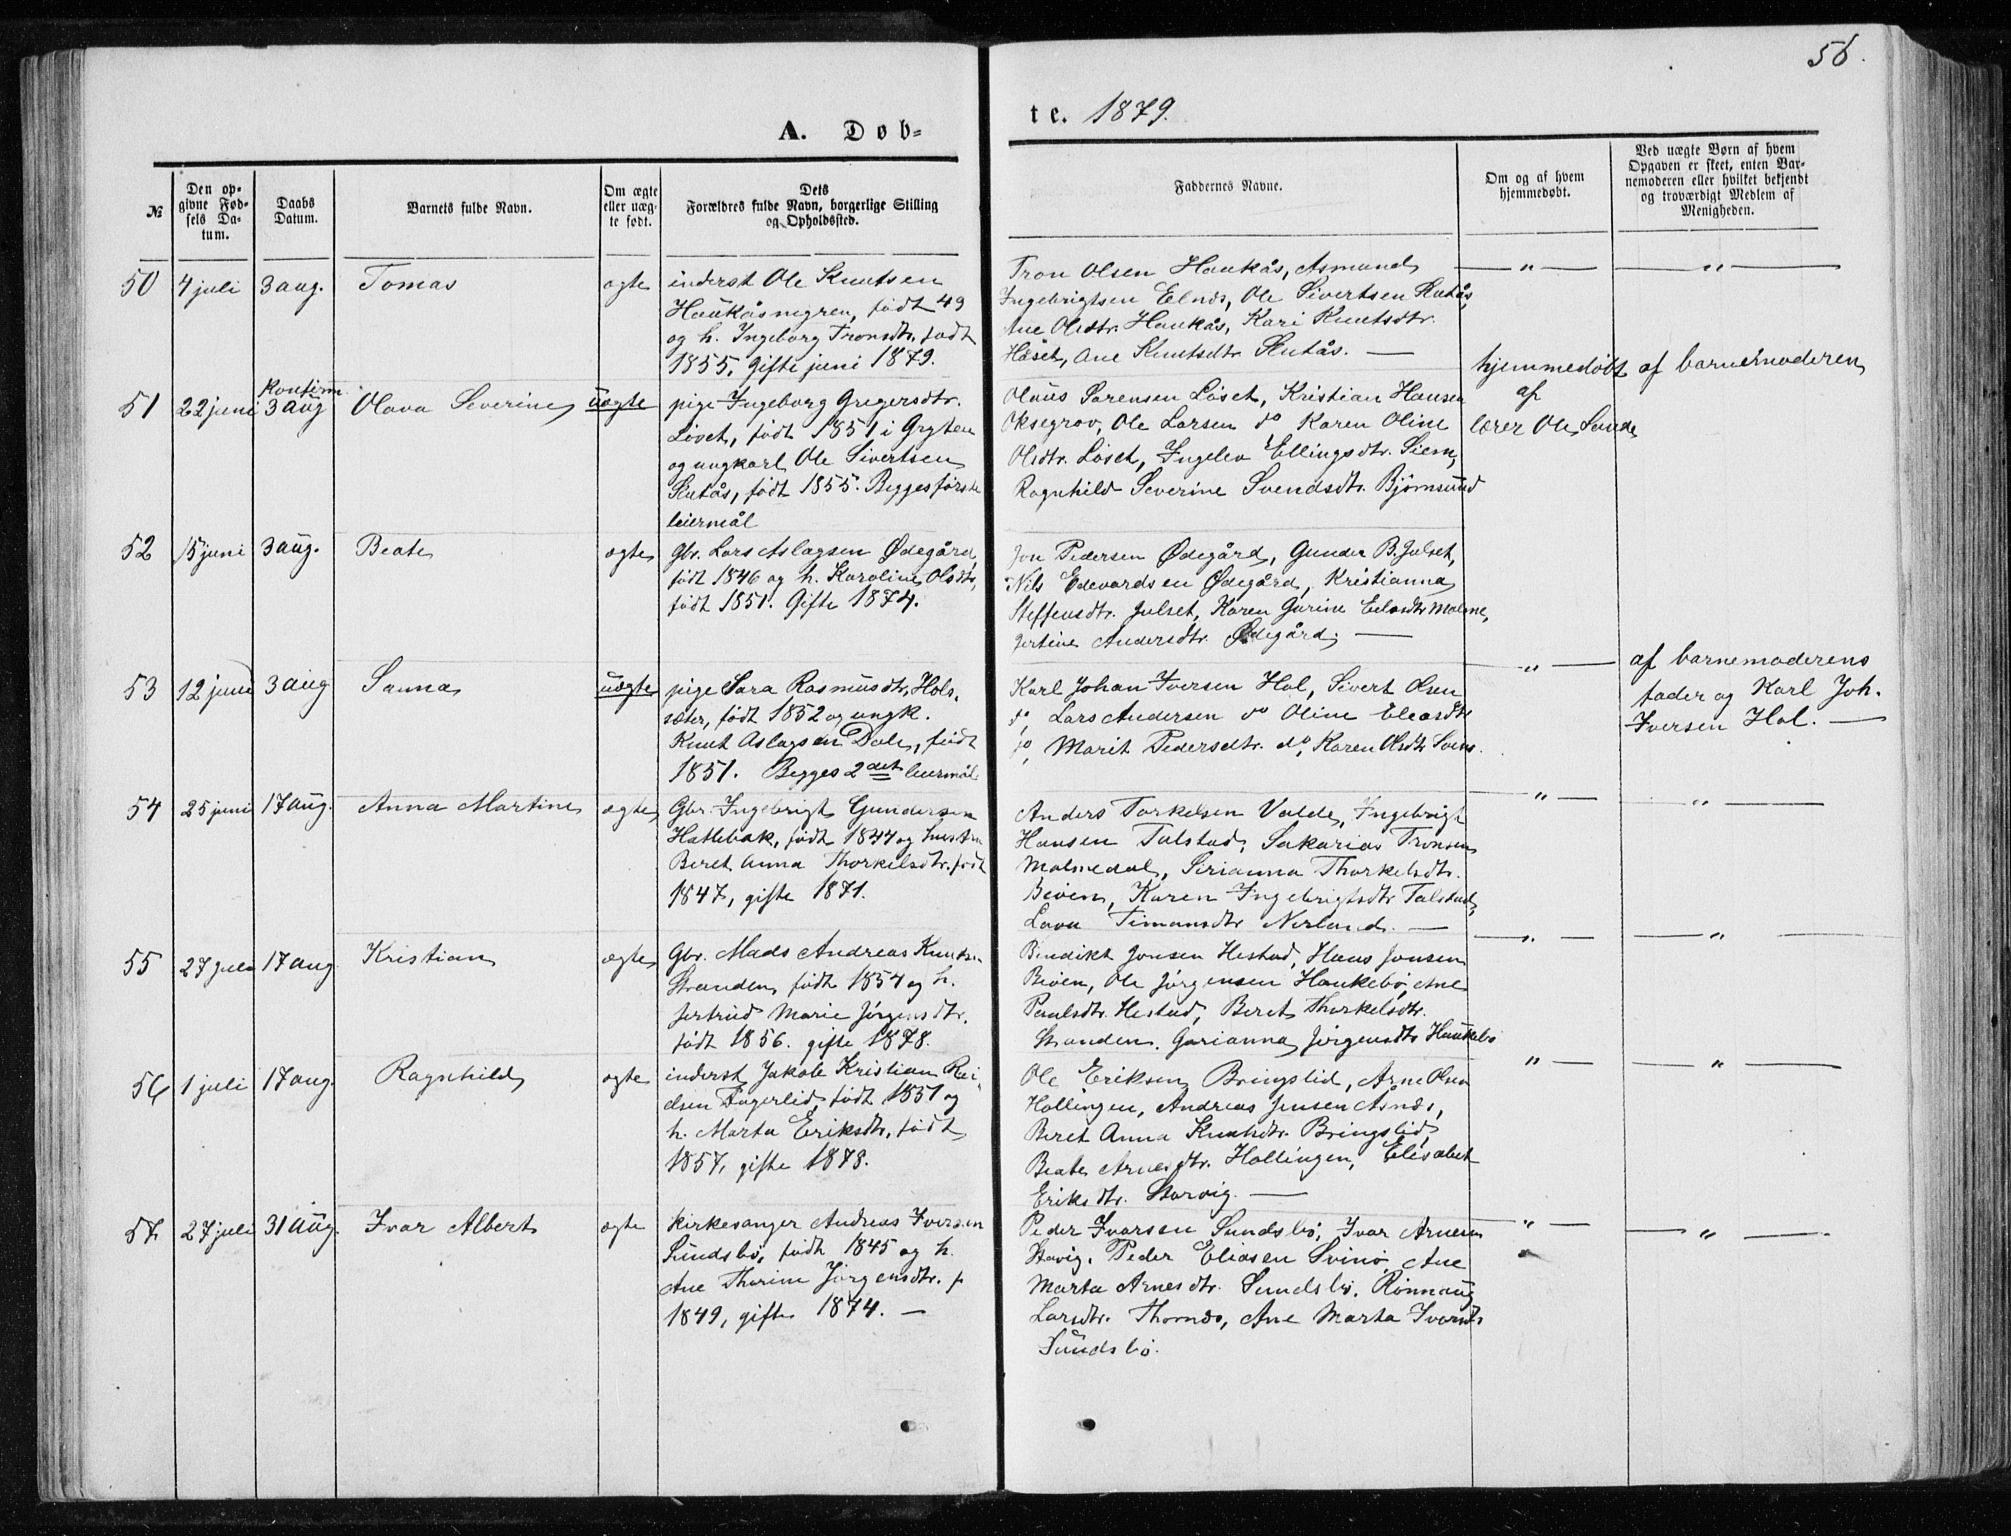 56.
A. Døb-
te. 1879.
№
Den op-
givne Fød-
sels Da-
tum.
Daabs
Datum.
Barnets fulde Navn.
Om ægte
eller uæg-
te født.
Dets
Forældres fulde Navn, borgerlige Stilling
og Opholdssted.
Faddernes Navne.
Om og af hvem
hjemmedøbt.
Ved uægte Børn af hvem
Opgaven er skeet, enten Bar-
nemoderen eller hvilket bekjendt
og troværdigt Medlem af
Menigheden.
50 4 juli 3 aug. Tomas ægte
inderst Ole Knutsen
Haukåsmyren, født 49
og h. Ingeborg Tronsdtr. født
1855. Gifte juni 1879.
Tron Olsen Haukås, Asmund
Ingebrigtsen Elnæs, Ole Sivertsen Skutås,
Ane Olsdtr. Haukås, Kari Knutsdtr.
Høset, Ane Knutsdtr. Skutås. —
— " —
— " —
51 22 juni Konfirm. 3 aug Olava Severine uægte
pige Ingeborg Gregersdtr.
Løset, født 1851 i Grytten
og ungkarl Ole Sivertsen
Skutås, født 1855. Begges første
leiermål
Olaus Sørensen Løset, Kristian Hansen
Oksegrov, Ole Larsen do Karen Oline
Olsdtr. Løset, Ingelev Ellingsdtr. Siem,
Ragnhild Severine Svendsdtr. Bjørnsund
hjemmedøbt
af
lærer Ole Sunde
af barnemoderen
52 15 juni 3 aug. Beate ægte
Gbr. Lars Aslagsen Ødegård,
født 1846 og h. Karoline Olsdtr,
født 1851. Gifte 1874.
Jon Pedersen Ødegård, Gunder B. Julset,
Nils Edevardsen Ødegård, Kristianna
Steffensdtr. Julset, Karen Gurine Eliasdtr Malme,
Jertine Andersdtr. Ødegård. —
53 12 juni 3 aug Sanna uægte
pige Sara Rasmusdtr, Hols-
sæter, født 1852 og ungk.
Knut Aslagsen Dale, født
1851. Begges 2det leiermål
Karl Johan Iversen Hol, Sivert Olsen
do, Lars Andersen do Oline Eleasdtr
do, Marit Pedersdtr. do, Karen Olsdtr
" —
af barnemoderens
fader og Karl Joh.
Iversen Hol. —
54 25 juni 17 aug. Anna Martine ægte
Gbr. Ingebrigt Gundersen
Hatlebak, født 1844 og hustru
Beret Anna Thorkelsdtr. født
1847, gifte 1871.
Anders Torkelsen Valde, Ingebrigt
Hansen Talstad, Sakarias Tronsen
Malmedal, Serianna Thorkelsdtr.
Beven, Karen Ingebrigtsdtr Talstad,
Lava Timansdtr Nerland. —
— " —
— " —
55 27 juli 17 aug Kristian ægte
Gbr. Mads Andreas Knutsen
Stranden, født 1854 og h.
Jertrud Marie Jørgensdtr.
født 1856. gifte 1878.
Bendikt Jonsen Hestad, Hans Jonsen
Beven, Ole Jørgensen Haukebø, Ane
Paulsdtr. Hestad, Beret Thorkelsdtr.
Stranden. Gurianna Jørgensdtr Haukebø
— " —
— " —
56 1 juli 17 aug. Ragnhild ægte
inderst Jakob Kristian Rei-
dsen Fagerlid, født 1851 og
h. Marta Eriksdtr, født
1857, gifte 1878.
Ole Eriksen Bringslid, Arne Olsen
Hollingen, Andreas Jensen Åsnæs,
Beret Anna Knutsdtr. Bringslid,
Beate Arnesdtr. Hollingen, Elisabet
Eriksdtr. Storvig. —
" —
— " —
57 27 juli 31 aug. Ivar Albert ægte
kirkesanger Andreas Iversen
Sundsbø, født 1845 og h.
Ane Thorine Jørgensdtr. f
1849, gifte 1874. —
Peder Ivarsen Sundsbø, Ivar Arnesen
Stavig. Peder Eliasen Svinø, Ane
Marta Arnesdtr. Sundsbø. Rønnaug
Larsdtr. Thornæs, Ane Marta Ivarsdtr
Sundsbø.
— " —
— " —